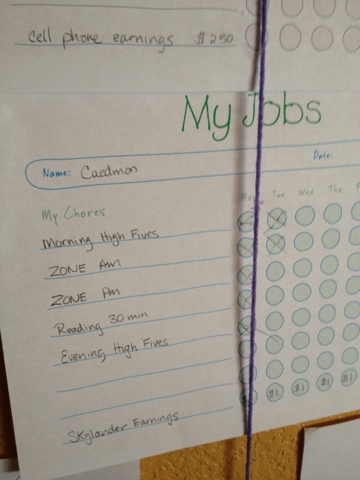 cell phone earnings $250
My Jobs
Name: Caedmon Date:
My Chores Mon Tue Wed Thu
Morning High Fives
ZONE AM
ZONE PM
Reading 30 min
Evening High Fives
$1 $1 $1 $1
Skylander Earnings